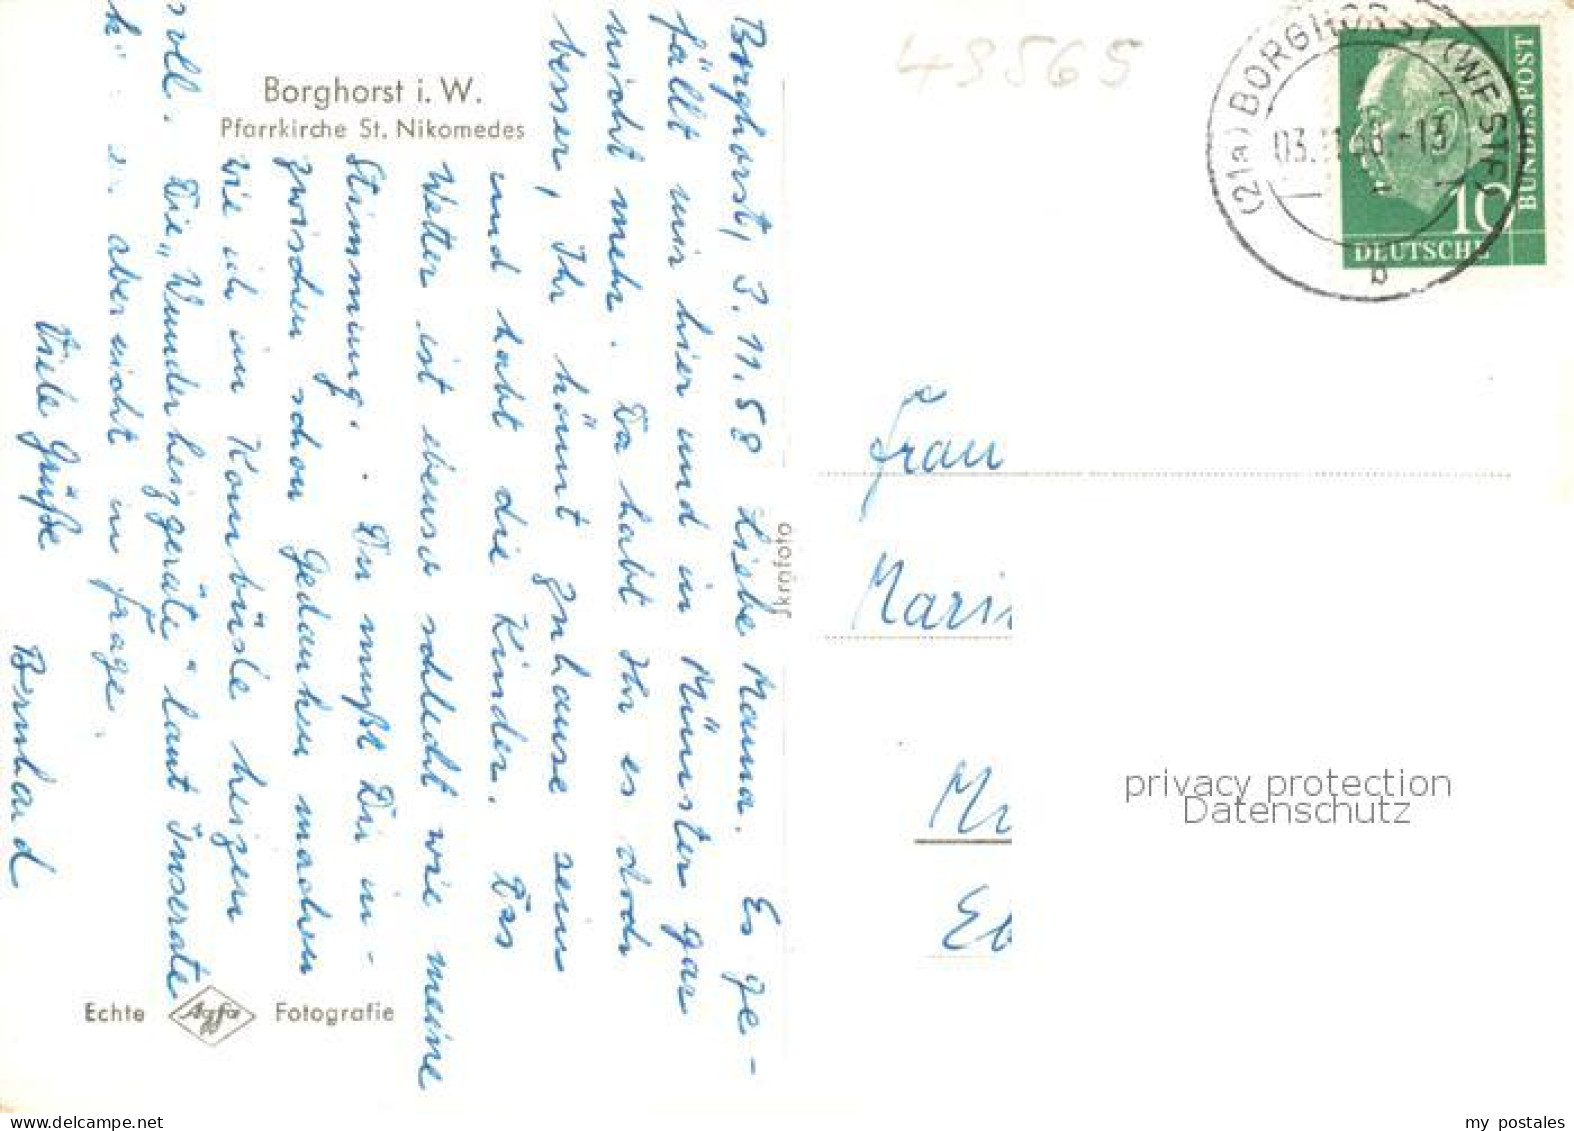 Borghorst i. W.
Pfarrkirche St. Nikomedes
Borghorst, 3.11.58 Liebe Mama. Es ge-
fällt mir hier und in Münster gar
nicht mehr. Da habt Ihr es doch
besser, Ihr könnt zuhause sein
und habt die Kinder. Das
Wetter ist ebenso schlecht wie meine
Stimmung. Du mußt Dir in-
zwischen schon Gedanken machen
wie ich im Kombüsle heizen
soll. Die „Wunderheizgeräte" laut Inserate
aber nicht in Frage.
Viele Grüße
Bernhard
Echte Agfa Fotografie
Skrafoto
49565
(21a) BORGHORST (WESTF)
03.11.58.-13
b
DEUTSCHE
BUNDESPOST
10
Frau
Mari
Mü
Eb
privacy protection
Datenschutz
my postales